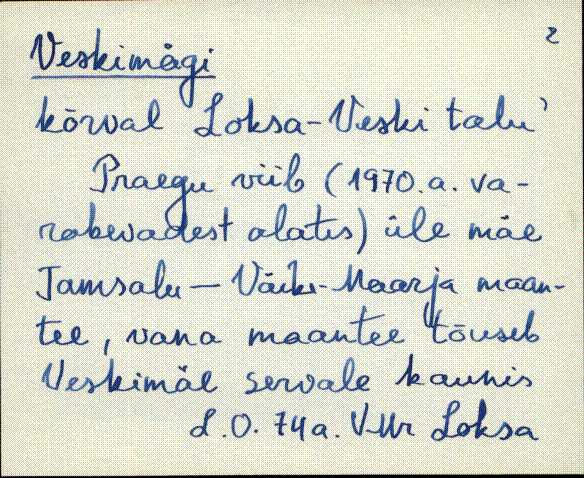 2
Veskimägi
kõrval Loksa-Veski talu'
Praegu viib (1970.a. va-
rakevadest alates) üle mäe
Tamsalu - Väike-Maarja maan-
tee, vana maantee tõuseb
Veskimäe servale kaunis
L.O. 74a. V-Mr Loksa